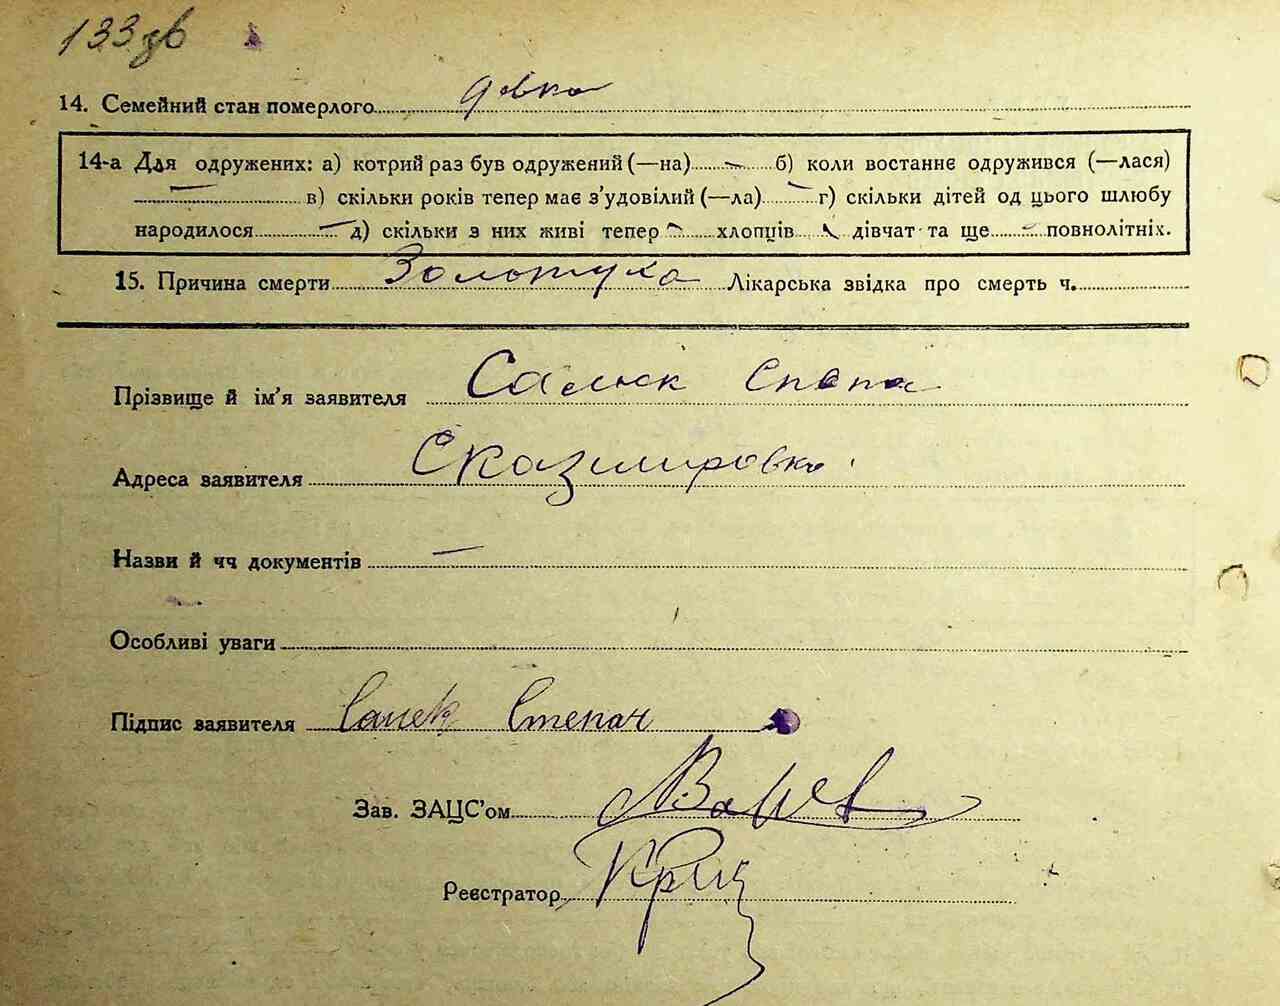 133 зв
14. Семейний стан померлого девка
14-а Для одружених: а) котрий раз був одружений (—на) — б) коли востаннє одружився (—лася)
— в) скільки років тепер має з'удовілий (—ла) — г) скільки дітей од цього шлюбу
народилося — д) скільки з них живі тепер — хлопців — дівчат та ще — повнолітніх.
15. Причина смерти Золотуха Лікарська звідка про смерть ч.
Прізвище й ім'я заявителя Салюк
Адреса заявителя Сказимировка
Назви й чч документів —
Особливі уваги
Підпис заявителя Степан
Зав. ЗАЦС'ом
Реєстратор